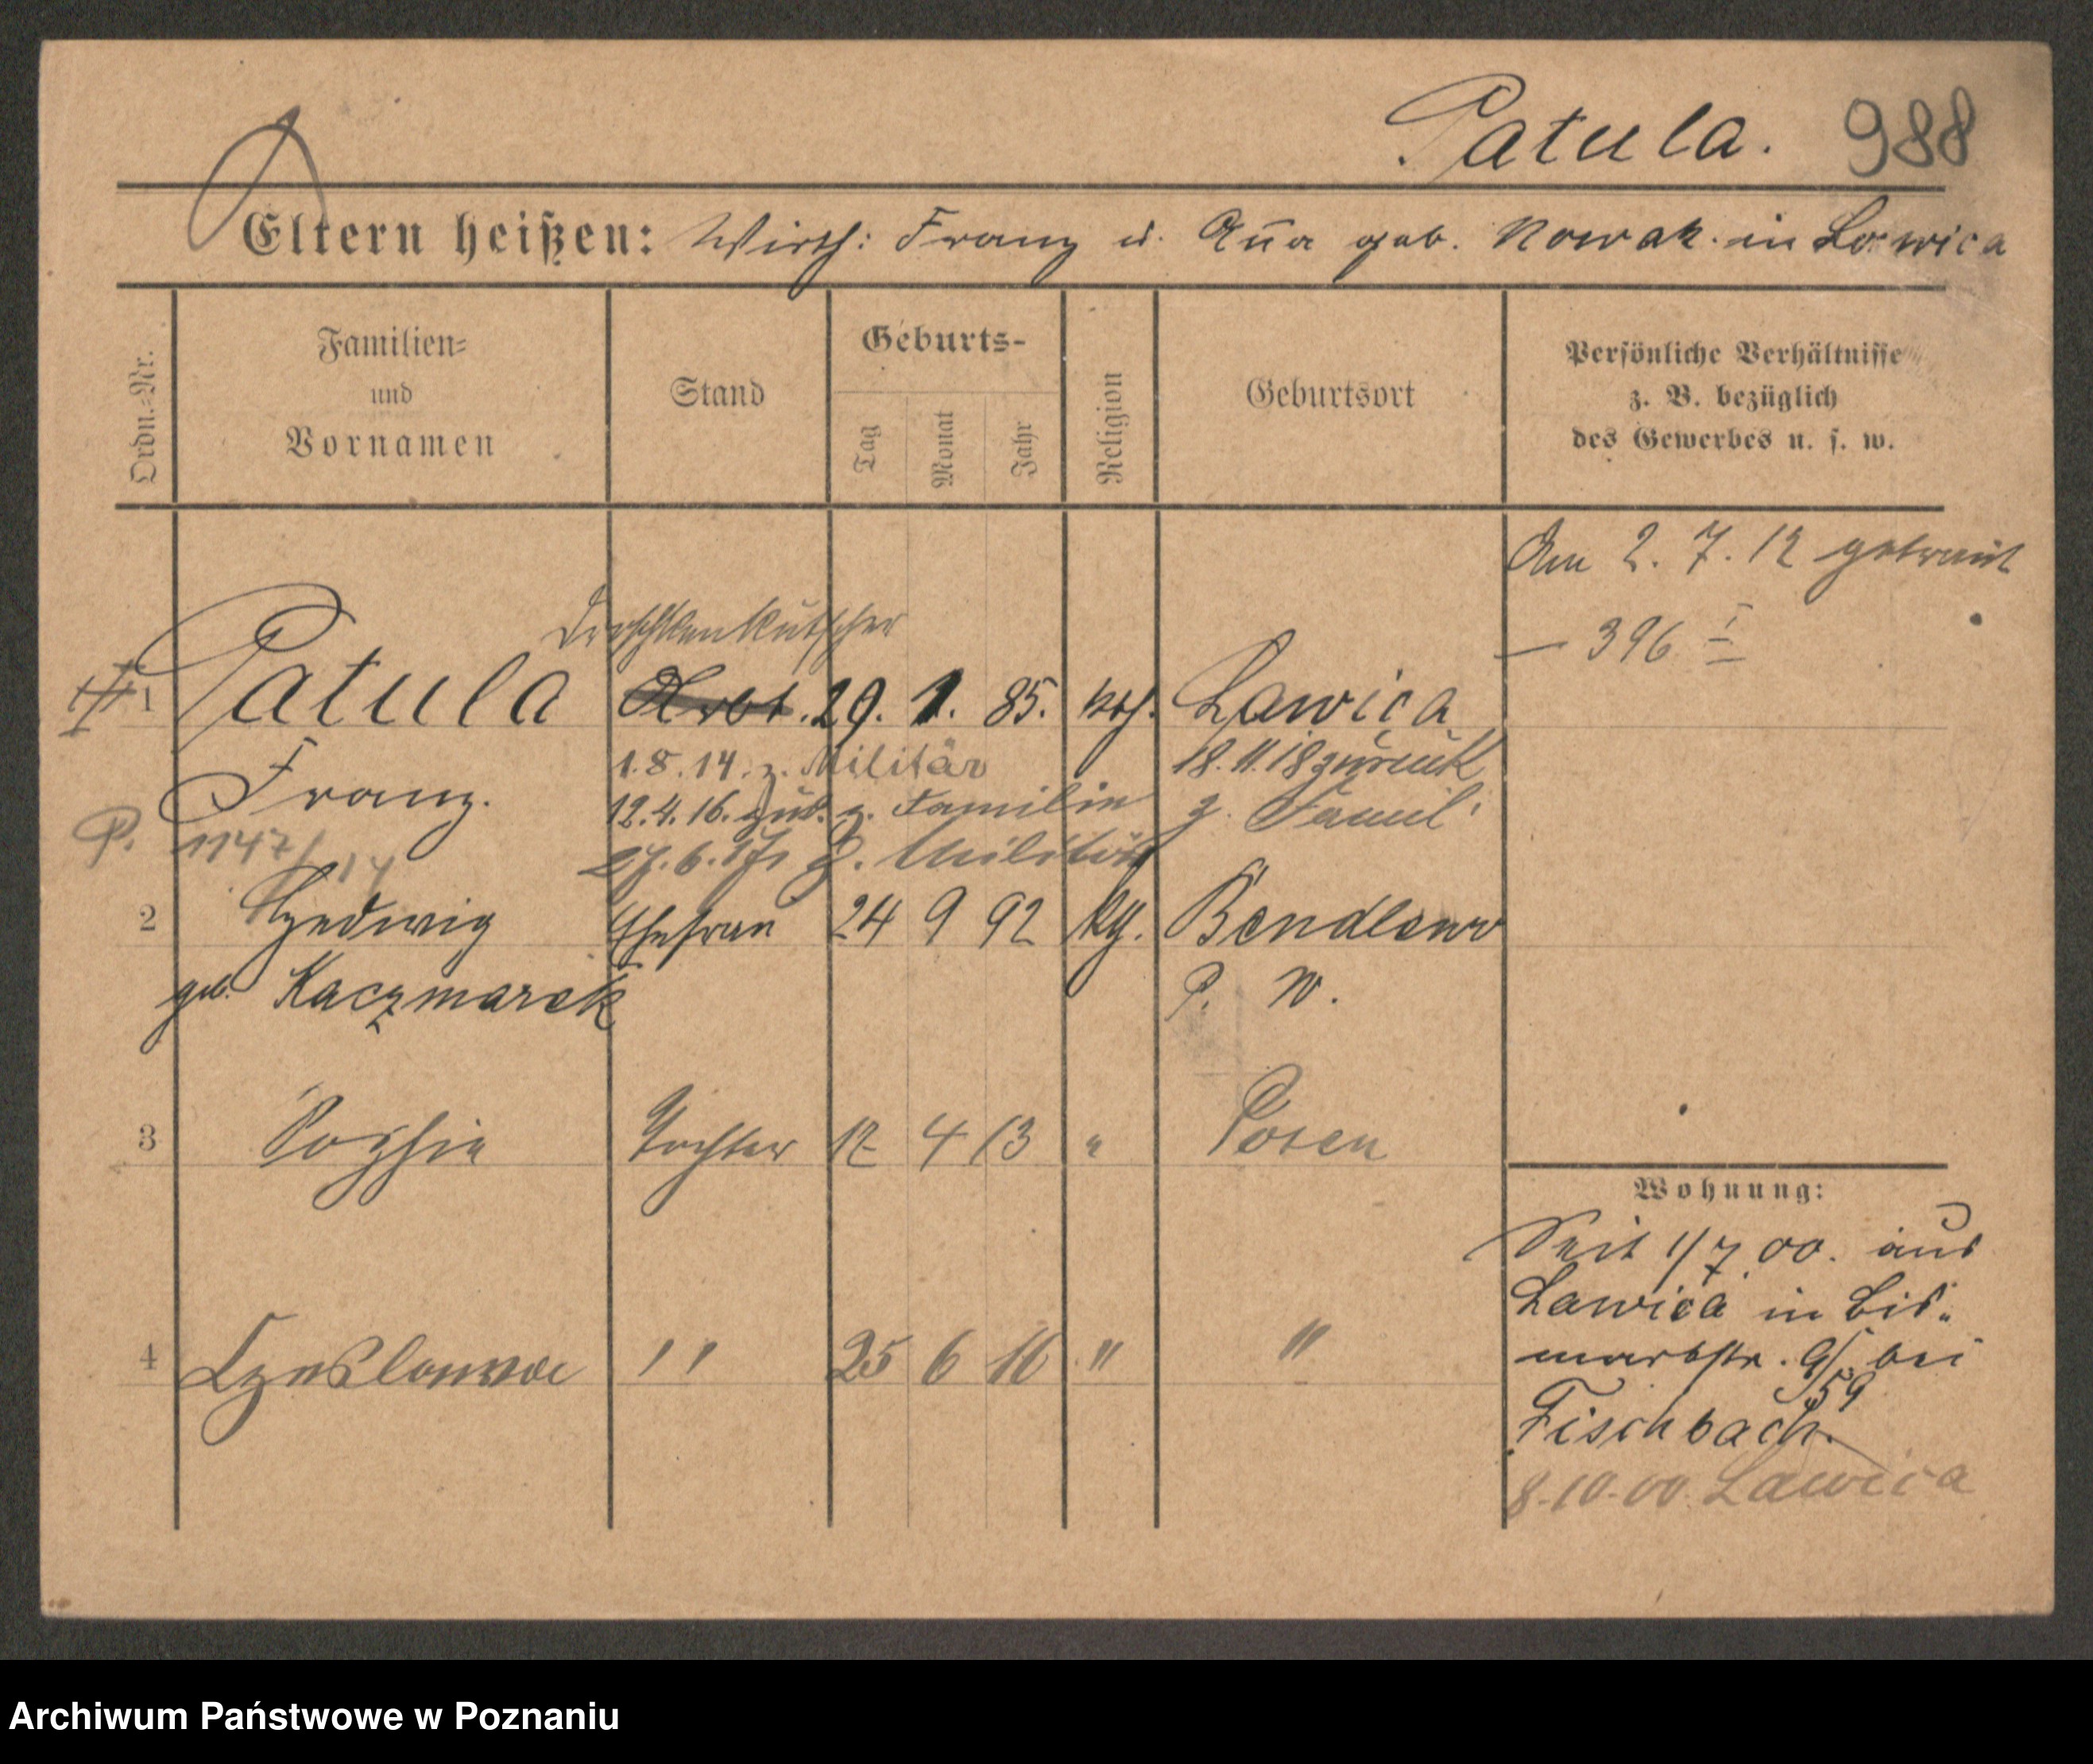 Patula. 988
Eltern heißen: Wirth: Franz u. Anna geb. Nowak. in Lawica
Ordn.-Nr.
Familien-
und
Vornamen
Stand
Geburts-
Tag
Monat
Jahr
Religion
Geburtsort
Persönliche Verhältnisse
z. B. bezüglich
des Gewerbes u. s. w.
Am 2. 7. 12 getraut
— 396 I
Droschkenkutscher
1 Patula Arbt. 29. 1. 85. kth. Lawica
Franz.
1.8.14. z. Militär
18.11.18 zurück
12.4.16. zur. z. Familie
z. Famil.
P. 1147/14
27.6.17 z. Militär
2 Hedwig Ehefrau 24 9 92 kth. Bendlewo
geb. Kaczmarek P. W.
3 Sophie Tochter 12 4 13 " Posen
4 Czeslawa " 25 6 16 " "
Wohnung:
Seit 1/7 00. aus
Lawica in Bis-
markstr. 9/ bei
59
Fischbach.
8-10-00 Lawica
Archiwum Państwowe w Poznaniu